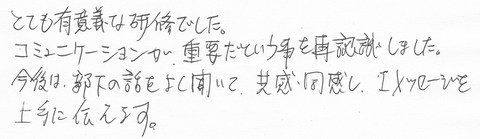 とても有意義な研修でした。
コミュニケーションが、重要だという事を再認識しました。
今後は、部下の話をよく聞いて、共感・同感し、Iメッセージを
上手に伝えます。